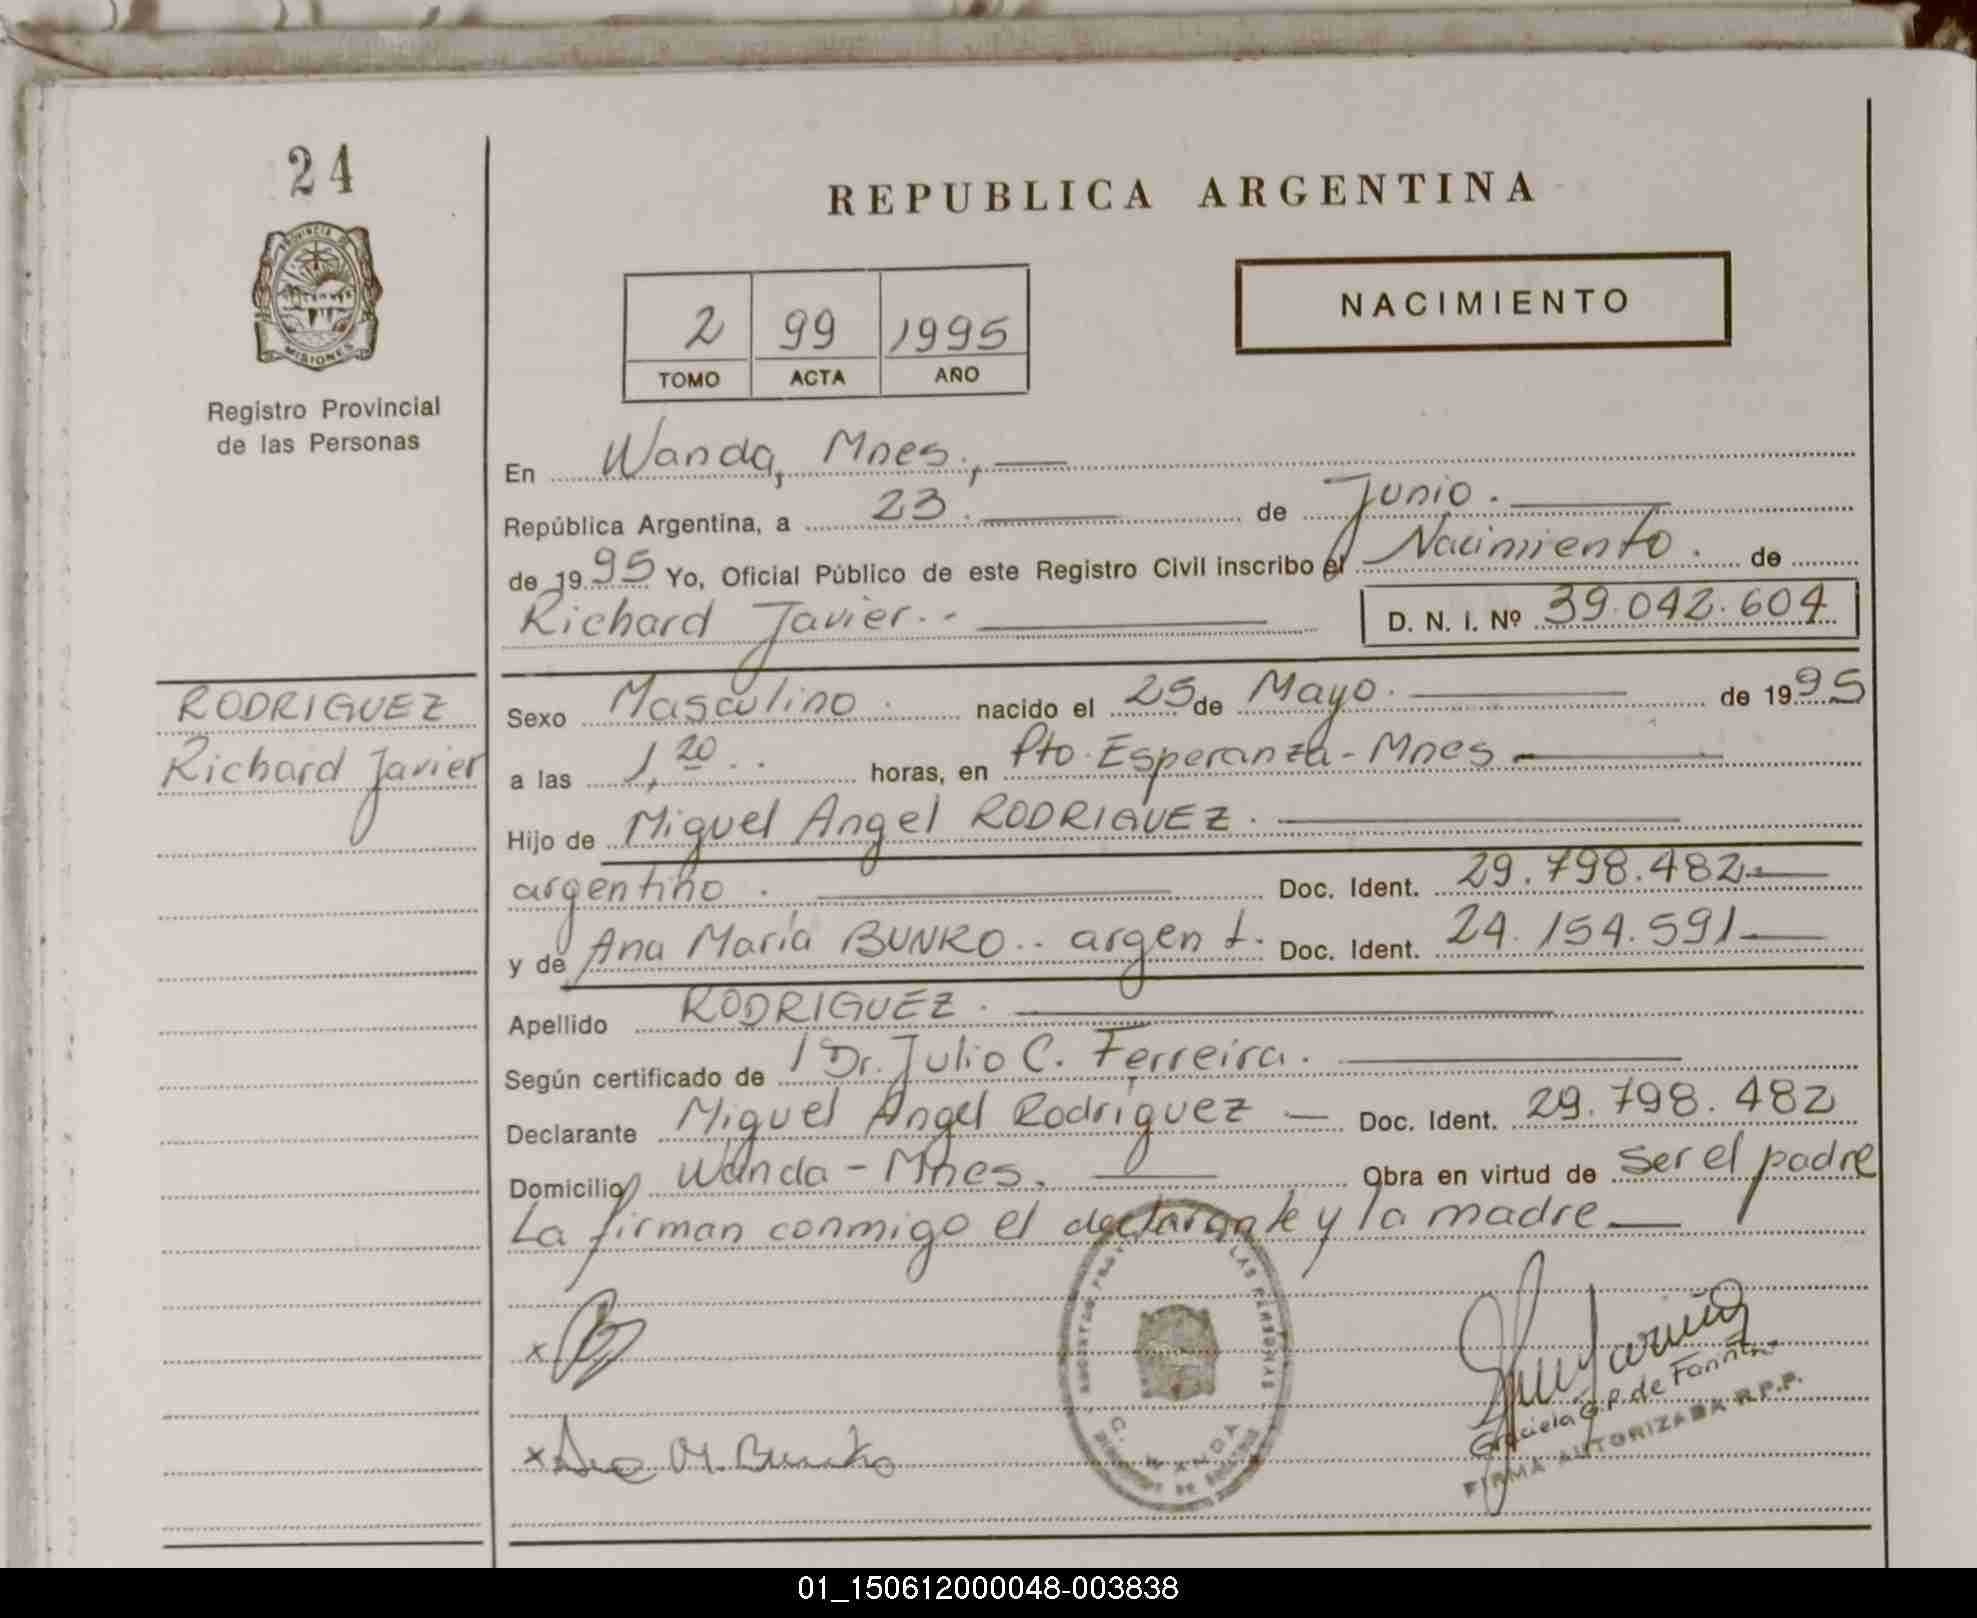 24
PROVINCIA DE
MISIONES
Registro Provincial
de las Personas
REPUBLICA ARGENTINA
2 99 1995
TOMO ACTA AÑO
NACIMIENTO
En Wanda, Mnes.,
República Argentina, a 23. de Junio.
de 1995 Yo, Oficial Público de este Registro Civil inscribo el Nacimiento. de
Richard Javier.- D. N. I. Nº 39.042.604
RODRIGUEZ
Richard Javier
Sexo Masculino. nacido el 25 de Mayo. de 1995
a las 1,20.. horas, en Pto. Esperanza - Mnes
Hijo de Miguel Angel RODRIGUEZ.
argentino. Doc. Ident. 29.798.482
y de Ana María BUNKO.. argent. Doc. Ident. 24.154.591
Apellido RODRIGUEZ.
Según certificado de Dr. Julio C. Ferreira.
Declarante Miguel Angel Rodriguez Doc. Ident. 29.798.482
Domicilio Wanda - Mnes. Obra en virtud de ser el padre
La firman conmigo el declarante y la madre
LAS PERSONAS
WANDA
x
x Ana M. Bunko
Graciela G.P. de Fariña
FIRMA AUTORIZADA R.P.P.
01_150612000048-003838